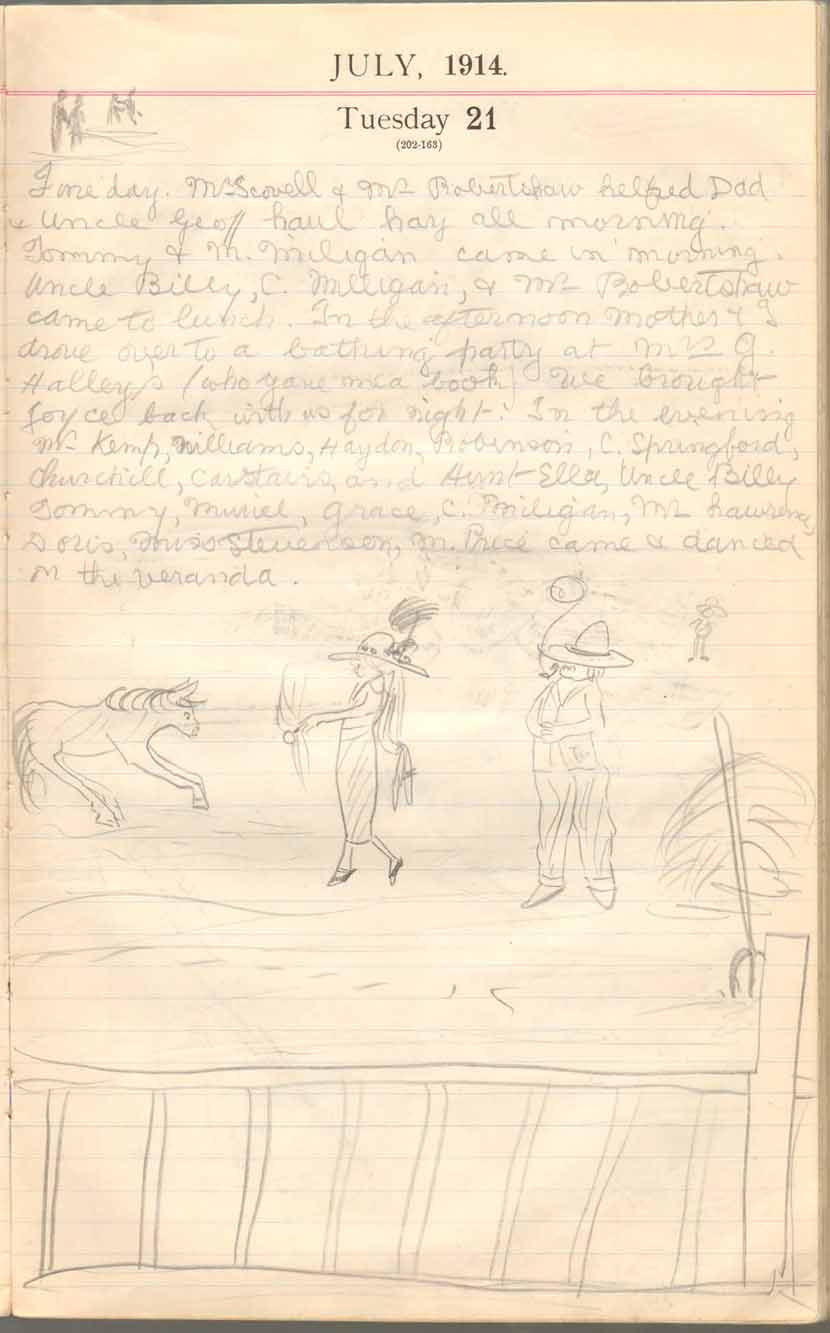 JULY, 1914.
Tuesday 21
(202-163)
Fine day. Mr Scovell & Mr Robertshaw helped Dad
& Uncle Geoff haul hay all morning.
Tommy & M. Miligan came in morning.
Uncle Billy, C. Milligan, & Mr Robertshaw
came to lunch. In the afternoon Mother & I
drove over to a bathing party at Mrs G.
Halley's (who gave me a book) We brought
Joyce back with us for night. In the evening
Mr Kemp, Williams, Haydon, Robinson, C. Springford,
Churchill, Carstairs, and Aunt Ella, Uncle Billy
Tommy, Muriel, Grace, C. Miligan, Mr Lawrence,
Doris, Miss Stevenson, M. Price came & danced
on the veranda.